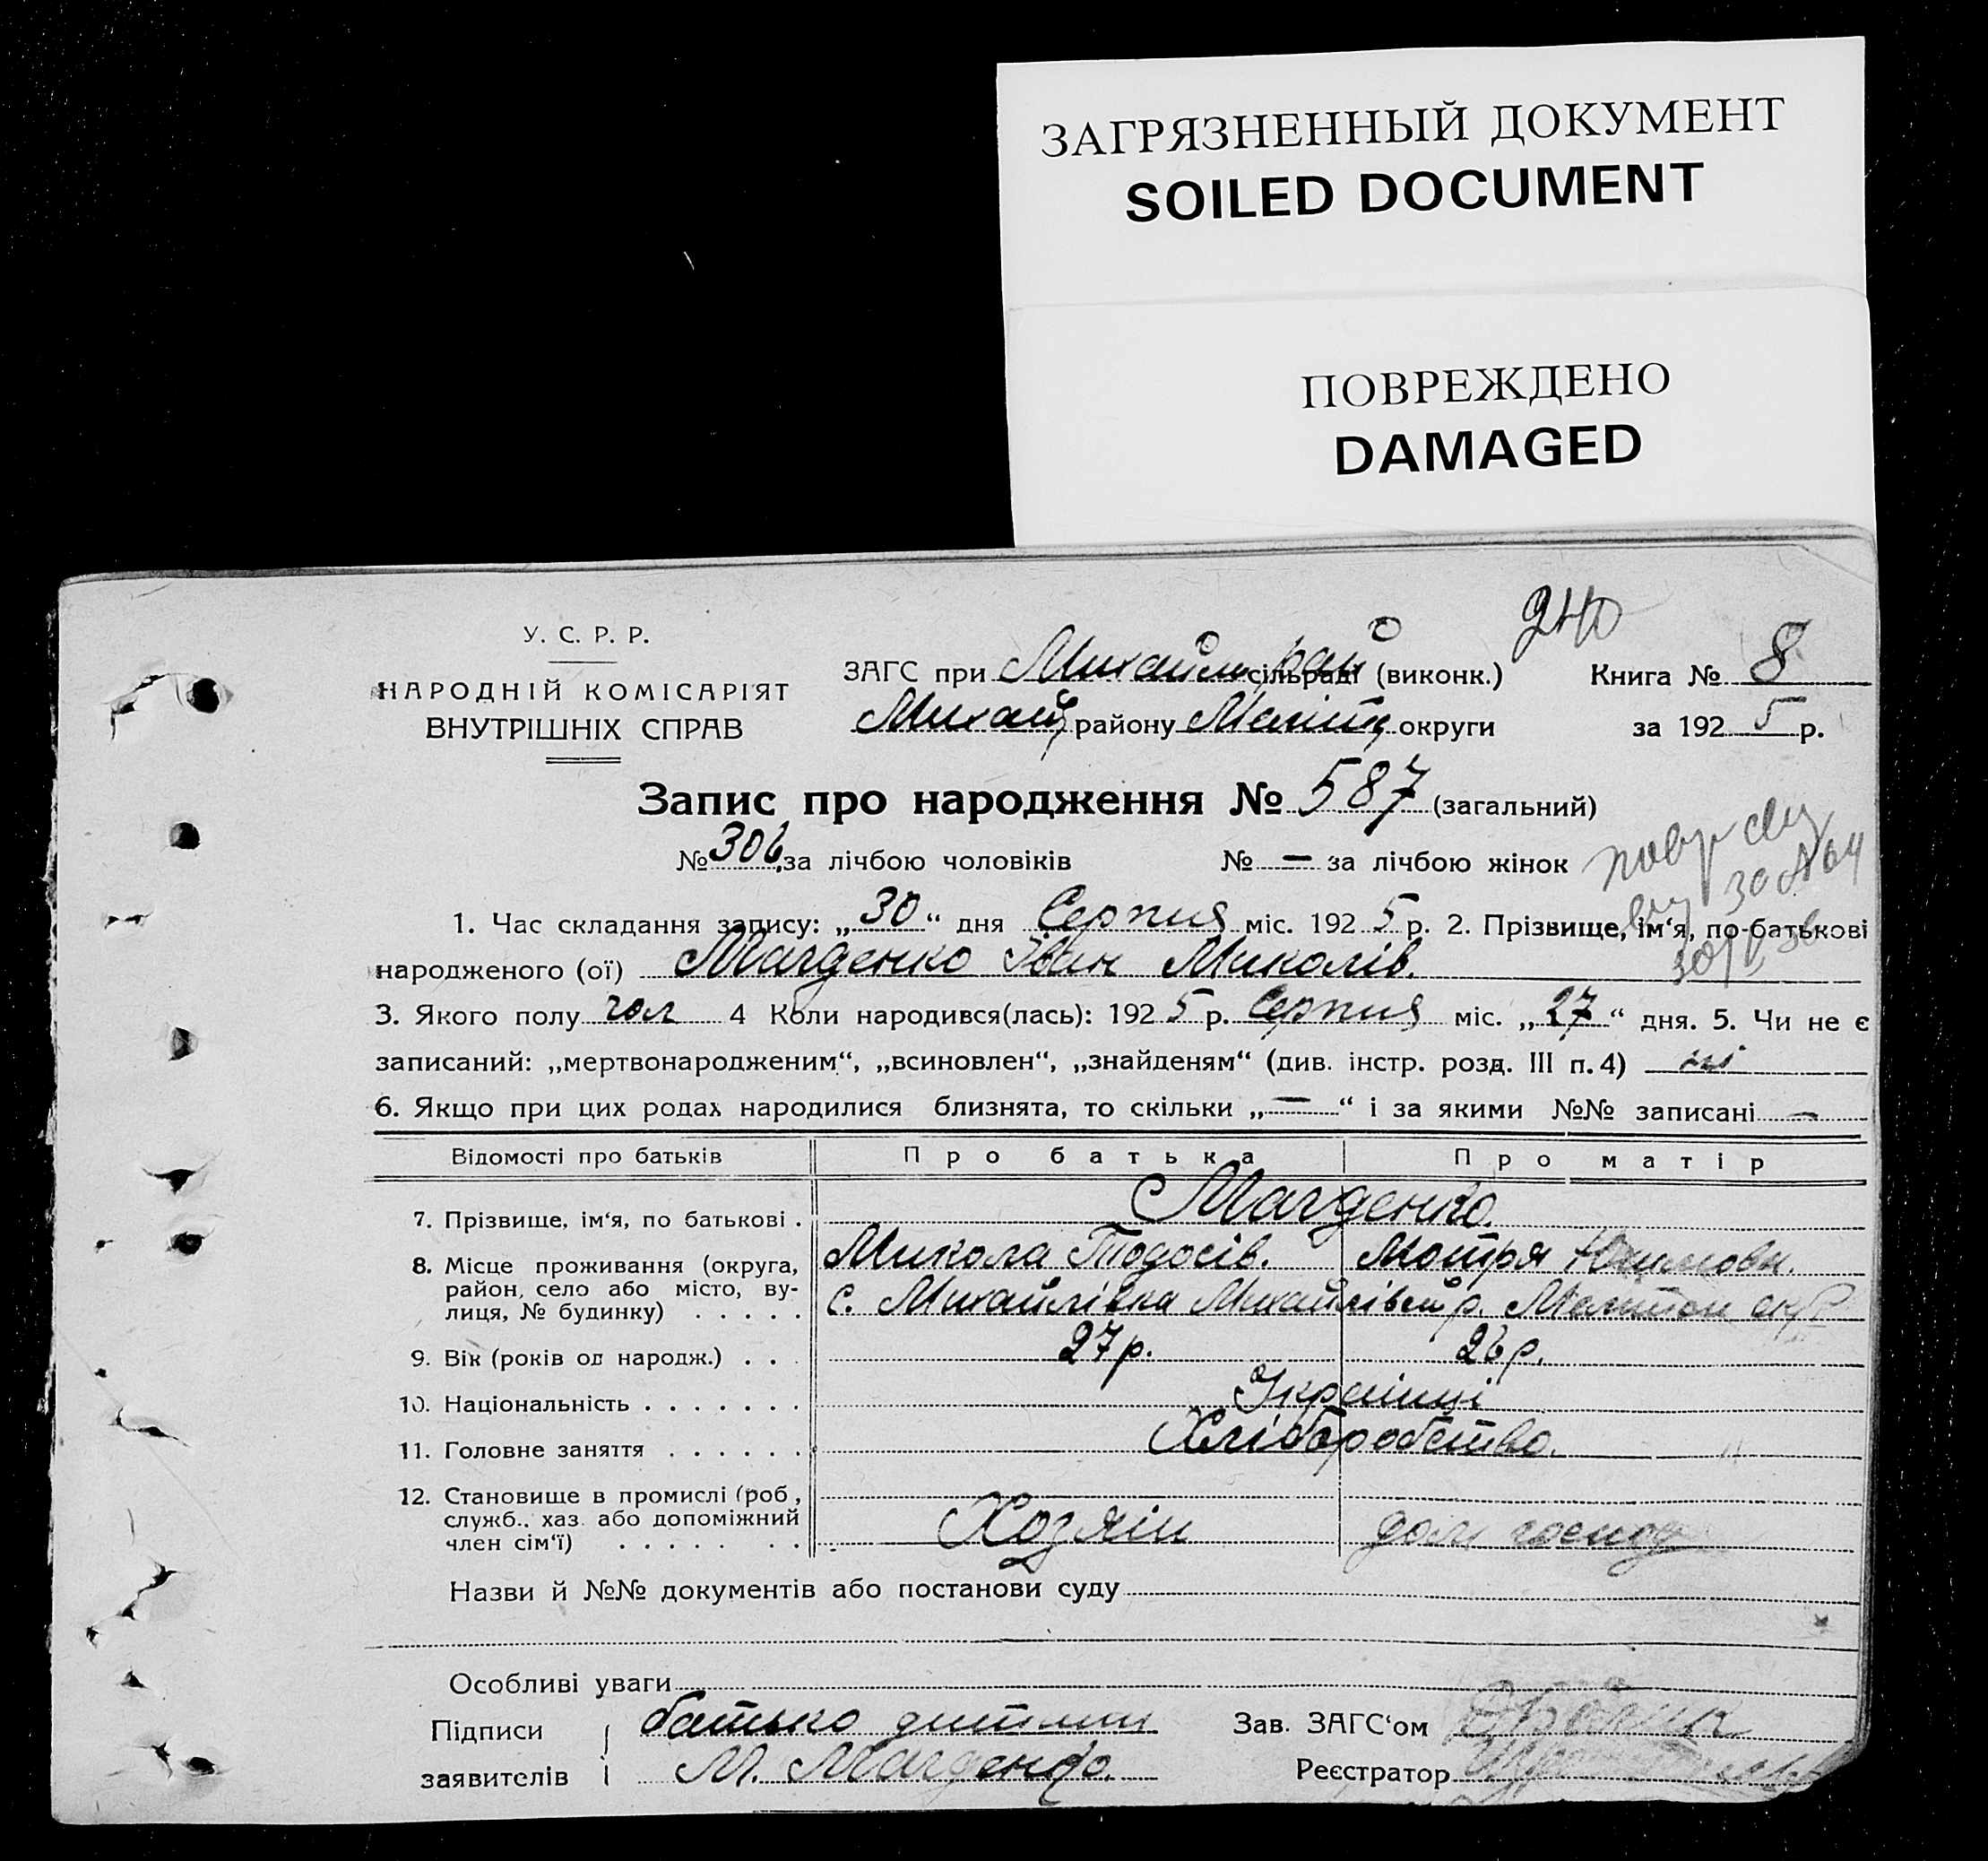 ЗАГРЯЗНЕННЫЙ ДОКУМЕНТ
SOILED DOCUMENT
ПОВРЕЖДЕНО
DAMAGED
240
У. С. Р. Р.
НАРОДНІЙ КОМІСАРІЯТ
ВНУТРІШНІХ СПРАВ
ЗАГС при сільраді (виконк.) Книга № 8
Михайл району Меліт округи за 1925 р.
Запис про народження № 587 (загальний)
№ 306 за лічбою чоловіків № — за лічбою жінок
30
1. Час складання запису: „30“ дня Серпня міс. 1925 р. 2. Прізвище, ім‘я, по-батькові
народженого (ої) Магденко Іван Миколів.
3. Якого полу чол 4 Коли народився(лась): 1925 р. Серпня міс. „27“ дня. 5. Чи не є
записаний: „мертвонародженим“, „всиновлен“, „знайденям“ (див. інстр. розд. III п. 4) ні
6. Якщо при цих родах народилися близнята, то скільки „—“ і за якими №№ записані —
Відомості про батьків Про батька Про матір
7. Прізвище, ім‘я, по батькові . Магденко.
Микола Тодосів. Мотря
8. Місце проживання (округа,
район, село або місто, ву-
лиця, № будинку) . . . . . с. Михайлівка Михайлівськ р. Мелітоп окр
9. Вік (років од народж.) . . . 27 р. 26 р.
10. Національність . . . . . . . Українці
11. Головне заняття . . . . . . Хліборобство.
12. Становище в промислі (роб,
служб., хаз. або допоміжний
член сім‘ї) . . . . . . . Хозяїн дом господ
Назви й №№ документів або постанови суду
Особливі уваги
Підписи батько дитини Зав. ЗАГС‘ом
заявителів М. Магденко. Реєстратор